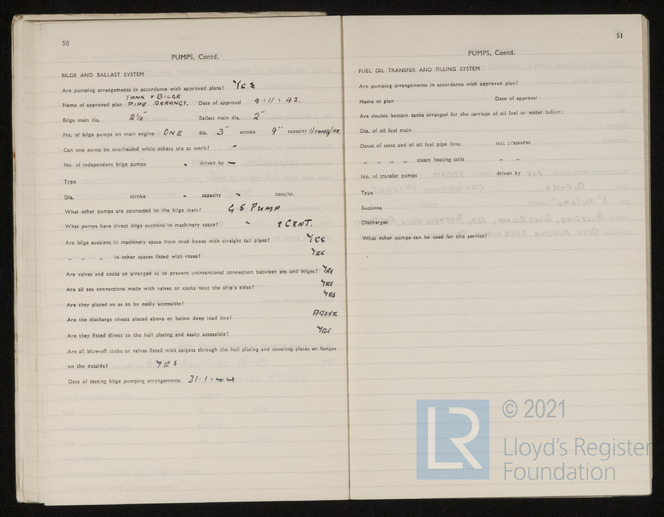 50
PUMPS, Contd.
BILGE AND BALLAST SYSTEM
Are pumping arrangements in accordance with approved plans? YES
TANK & BILGE
Name of approved plan PIPE ARRANGT. Date of approval 9.11.42.
Bilge main dia. 2½" Ballast main dia. 2"
No. of bilge pumps on main engine ONE dia. 3" stroke 9" capacity 11 TONS/HR.
Can one pump be overhauled while others are at work? -
No. of independent bilge pumps - driven by -
Type
Dia. stroke - capacity - tons/hr.
What other pumps are connected to the bilge main? G S PUMP
What pumps have direct bilge suctions in machinery space? " & CENT.
Are bilge suctions in machinery space from mud boxes with straight tail pipes? YES
" " " in other spaces fitted with roses? YES
Are valves and cocks so arranged as to prevent unintentional connection between sea and bilges? YES
Are all sea connections made with valves or cocks next the ship's sides? YES
Are they placed so as to be easily accessible? YES
Are the discharge chests placed above or below deep load line? ABOVE
Are they fitted direct to the hull plating and easily accessible? YES
Are all blow-off cocks or valves fitted with spigots through the hull plating and covering plates or flanges
on the outside? YES
Date of testing bilge pumping arrangements 31-1-44
51
PUMPS, Contd.
FUEL OIL TRANSFER AND FILLING SYSTEM
Are pumping arrangements in accordance with approved plan?
Name of plan Date of approval
Are double bottom tanks arranged for the carriage of oil fuel or water ballast?
Dia. of oil fuel main
Dates of tests and of oil fuel pipe lines test pressures
" " " " steam heating coils " "
No. of transfer pumps driven by
Type
Suctions
Discharges
What other pumps can be used for this service?
LR
© 2021
Lloyd's Register
Foundation